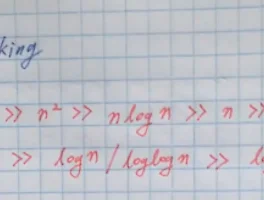 king
>> n² >> n log n >> n >>
>> log n / loglog n >> l